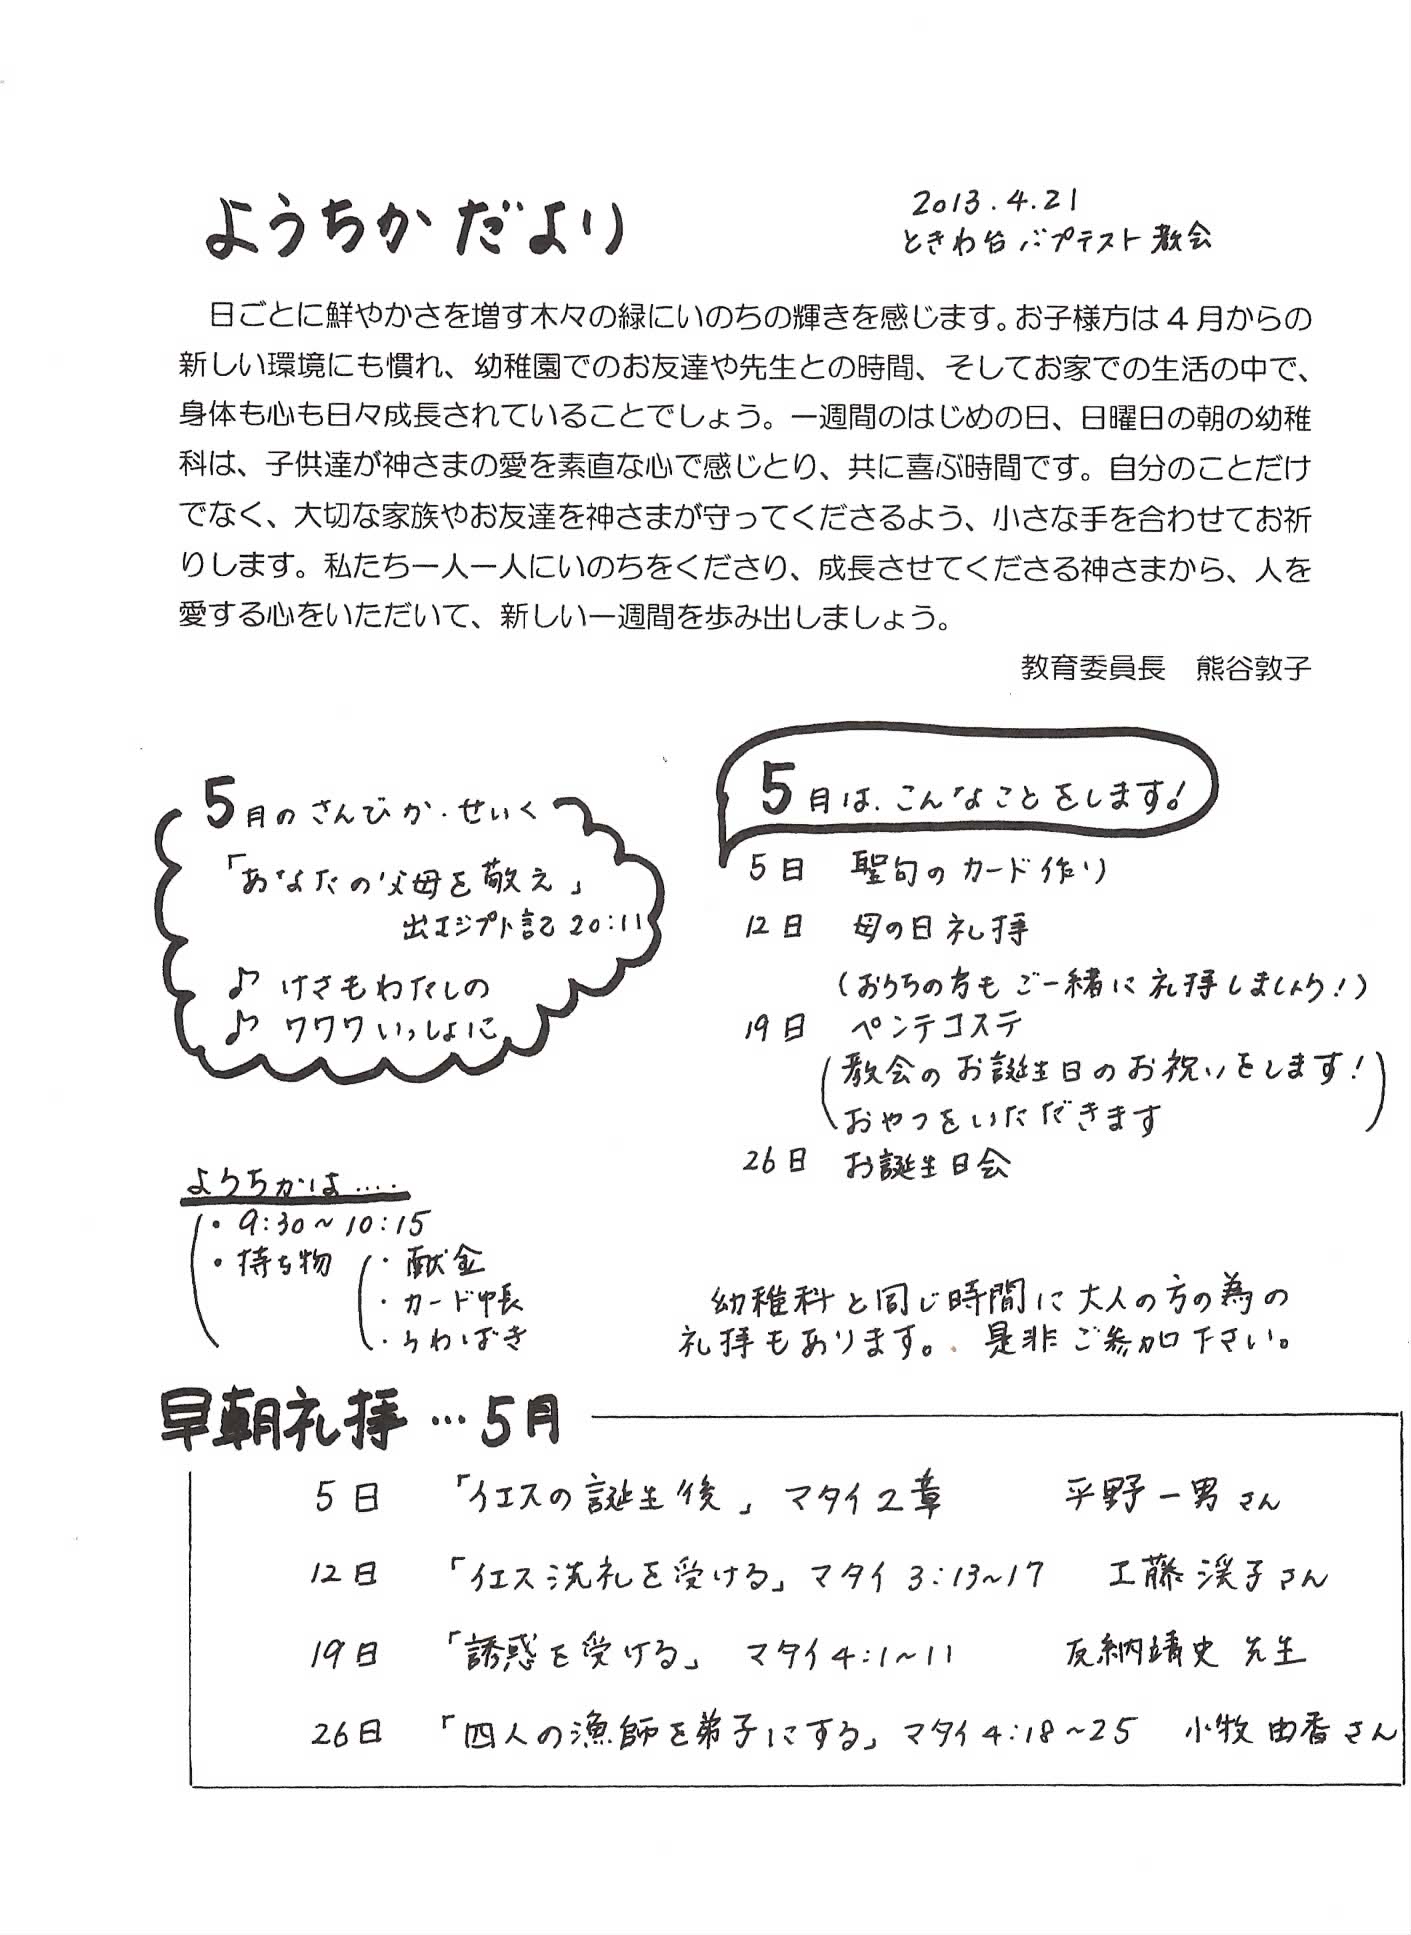 ようちか だより
2013.4.21
ときわ台バプテスト教会
日ごとに鮮やかさを増す木々の緑にいのちの輝きを感じます。お子様方は4月からの
新しい環境にも慣れ、幼稚園でのお友達や先生との時間、そしてお家での生活の中で、
身体も心も日々成長されていることでしょう。一週間のはじめの日、日曜日の朝の幼稚
科は、子供達が神さまの愛を素直な心で感じとり、共に喜ぶ時間です。自分のことだけ
でなく、大切な家族やお友達を神さまが守ってくださるよう、小さな手を合わせてお祈
りします。私たち一人一人にいのちをくださり、成長させてくださる神さまから、人を
愛する心をいただいて、新しい一週間を歩み出しましょう。
教育委員長 熊谷敦子
5月のさんびか・せいく
「あなたの父母を敬え」
出エジプト記20:11
♪ けさもわたしの
♪ ワワワいっしょに
5月は、こんなことをします!
5日 聖句のカード作り
12日 母の日礼拝
(おうちの方もご一緒に礼拝しましょう!)
19日 ペンテコステ
(教会のお誕生日のお祝いをします!
おやつをいただきます)
26日 お誕生日会
ようちかは‥‥
・9:30~10:15
・持ち物 ・献金
・カード帳
・うわばき
幼稚科と同じ時間に大人の方の為の
礼拝もあります。是非ご参加下さい。
早朝礼拝…5月
5日 「イエスの誕生後」マタイ2章 平野一男さん
12日 「イエス洗礼を受ける」マタイ3:13~17 工藤渓子さん
19日 「誘惑を受ける」 マタイ4:1~11 友納靖史先生
26日 「四人の漁師を弟子にする」マタイ4:18~25 小牧由香さん